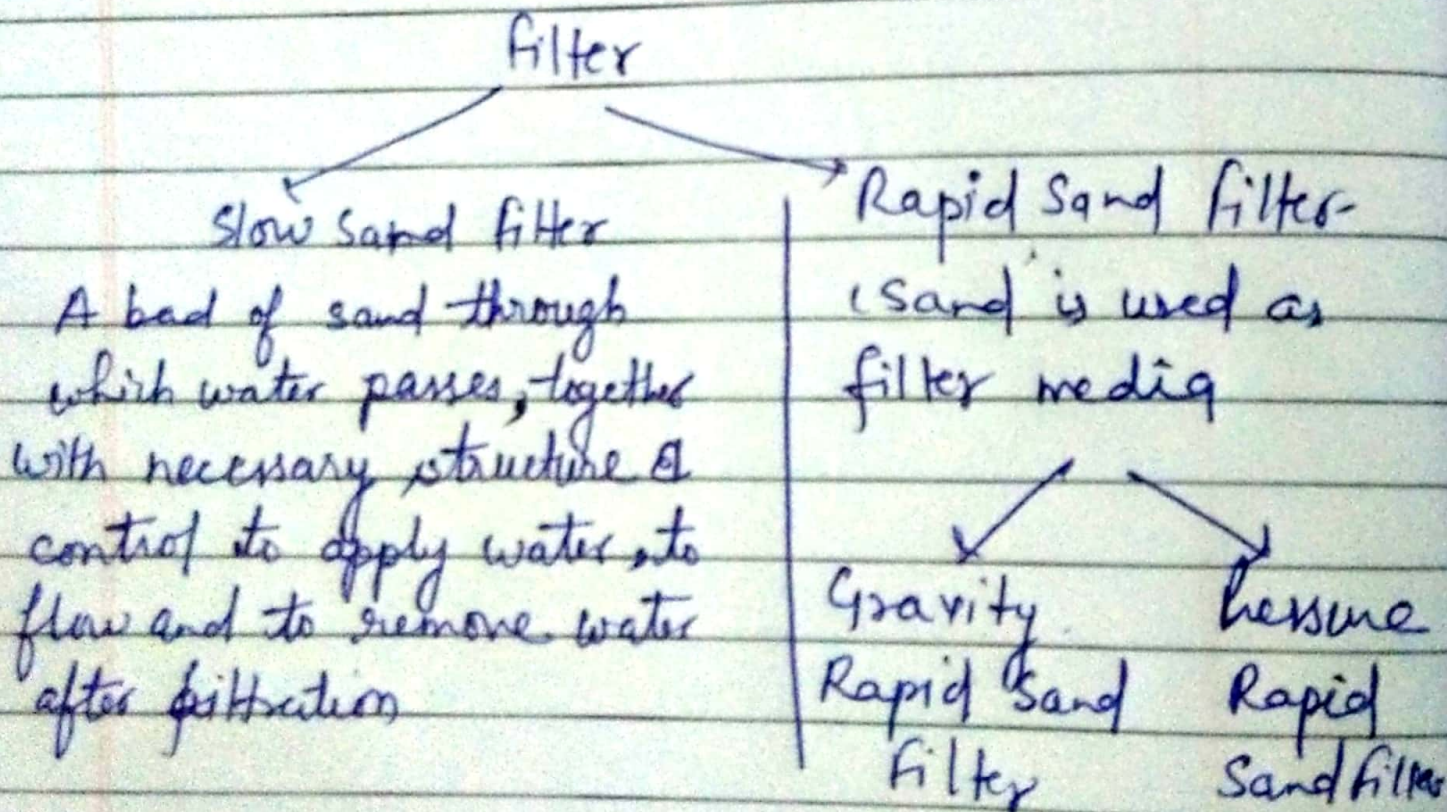 Filter
Slow Sand filter
A bed of sand through
which water passes, together
with necessary structure &
control to apply water, to
flow and to remove water
after filtration
Rapid Sand filter
(Sand is used as
filter media
Gravity
Rapid Sand
Filter
Pressure
Rapid
Sand filter